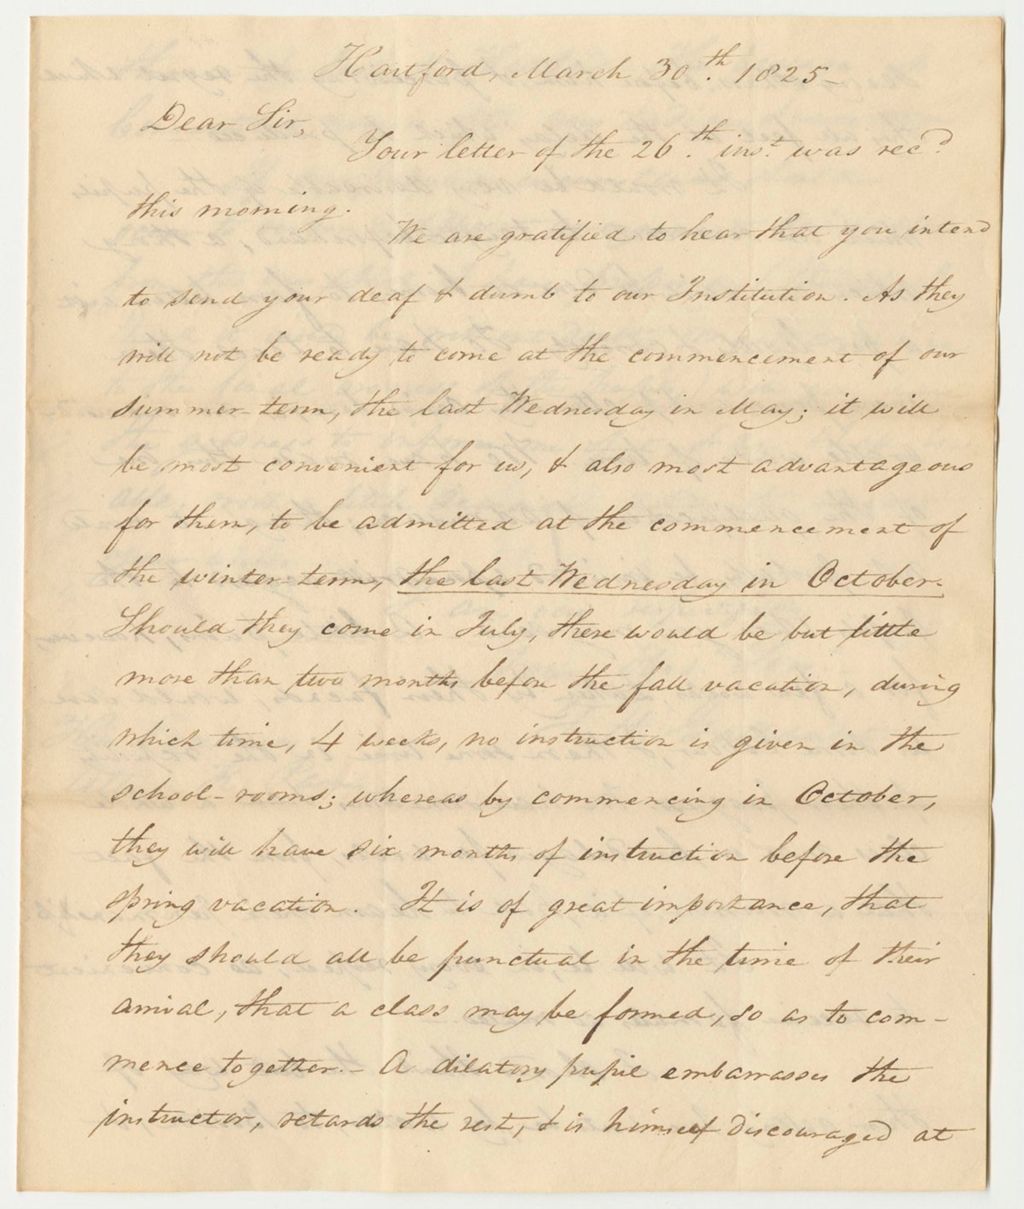 Hartford, March 30.th 1825-
Dear Sir,
Your letter of the 26.th inst. was rec.d
this morning.
We are gratified to hear that you intend
to send your deaf & dumb to our Institution. As they
will not be ready to come at the commencement of our
summer-term, the last Wednesday in May; it will
be most convenient for us, & also most advantageous
for them, to be admitted at the commencement of
the winter-term, the last Wednesday in October.
Should they come in July, there would be but little
more than two months before the fall vacation, during
which time, 4 weeks, no instruction is given in the
school-rooms; whereas by commencing in October,
they will have six months of instruction before the
spring vacation. It is of great importance, that
they should all be punctual in the time of their
arrival, that a class may be formed, so as to com-
mence together.- A dilatory pupil embarrasses the
instructor, retards the rest, & is himself discouraged at